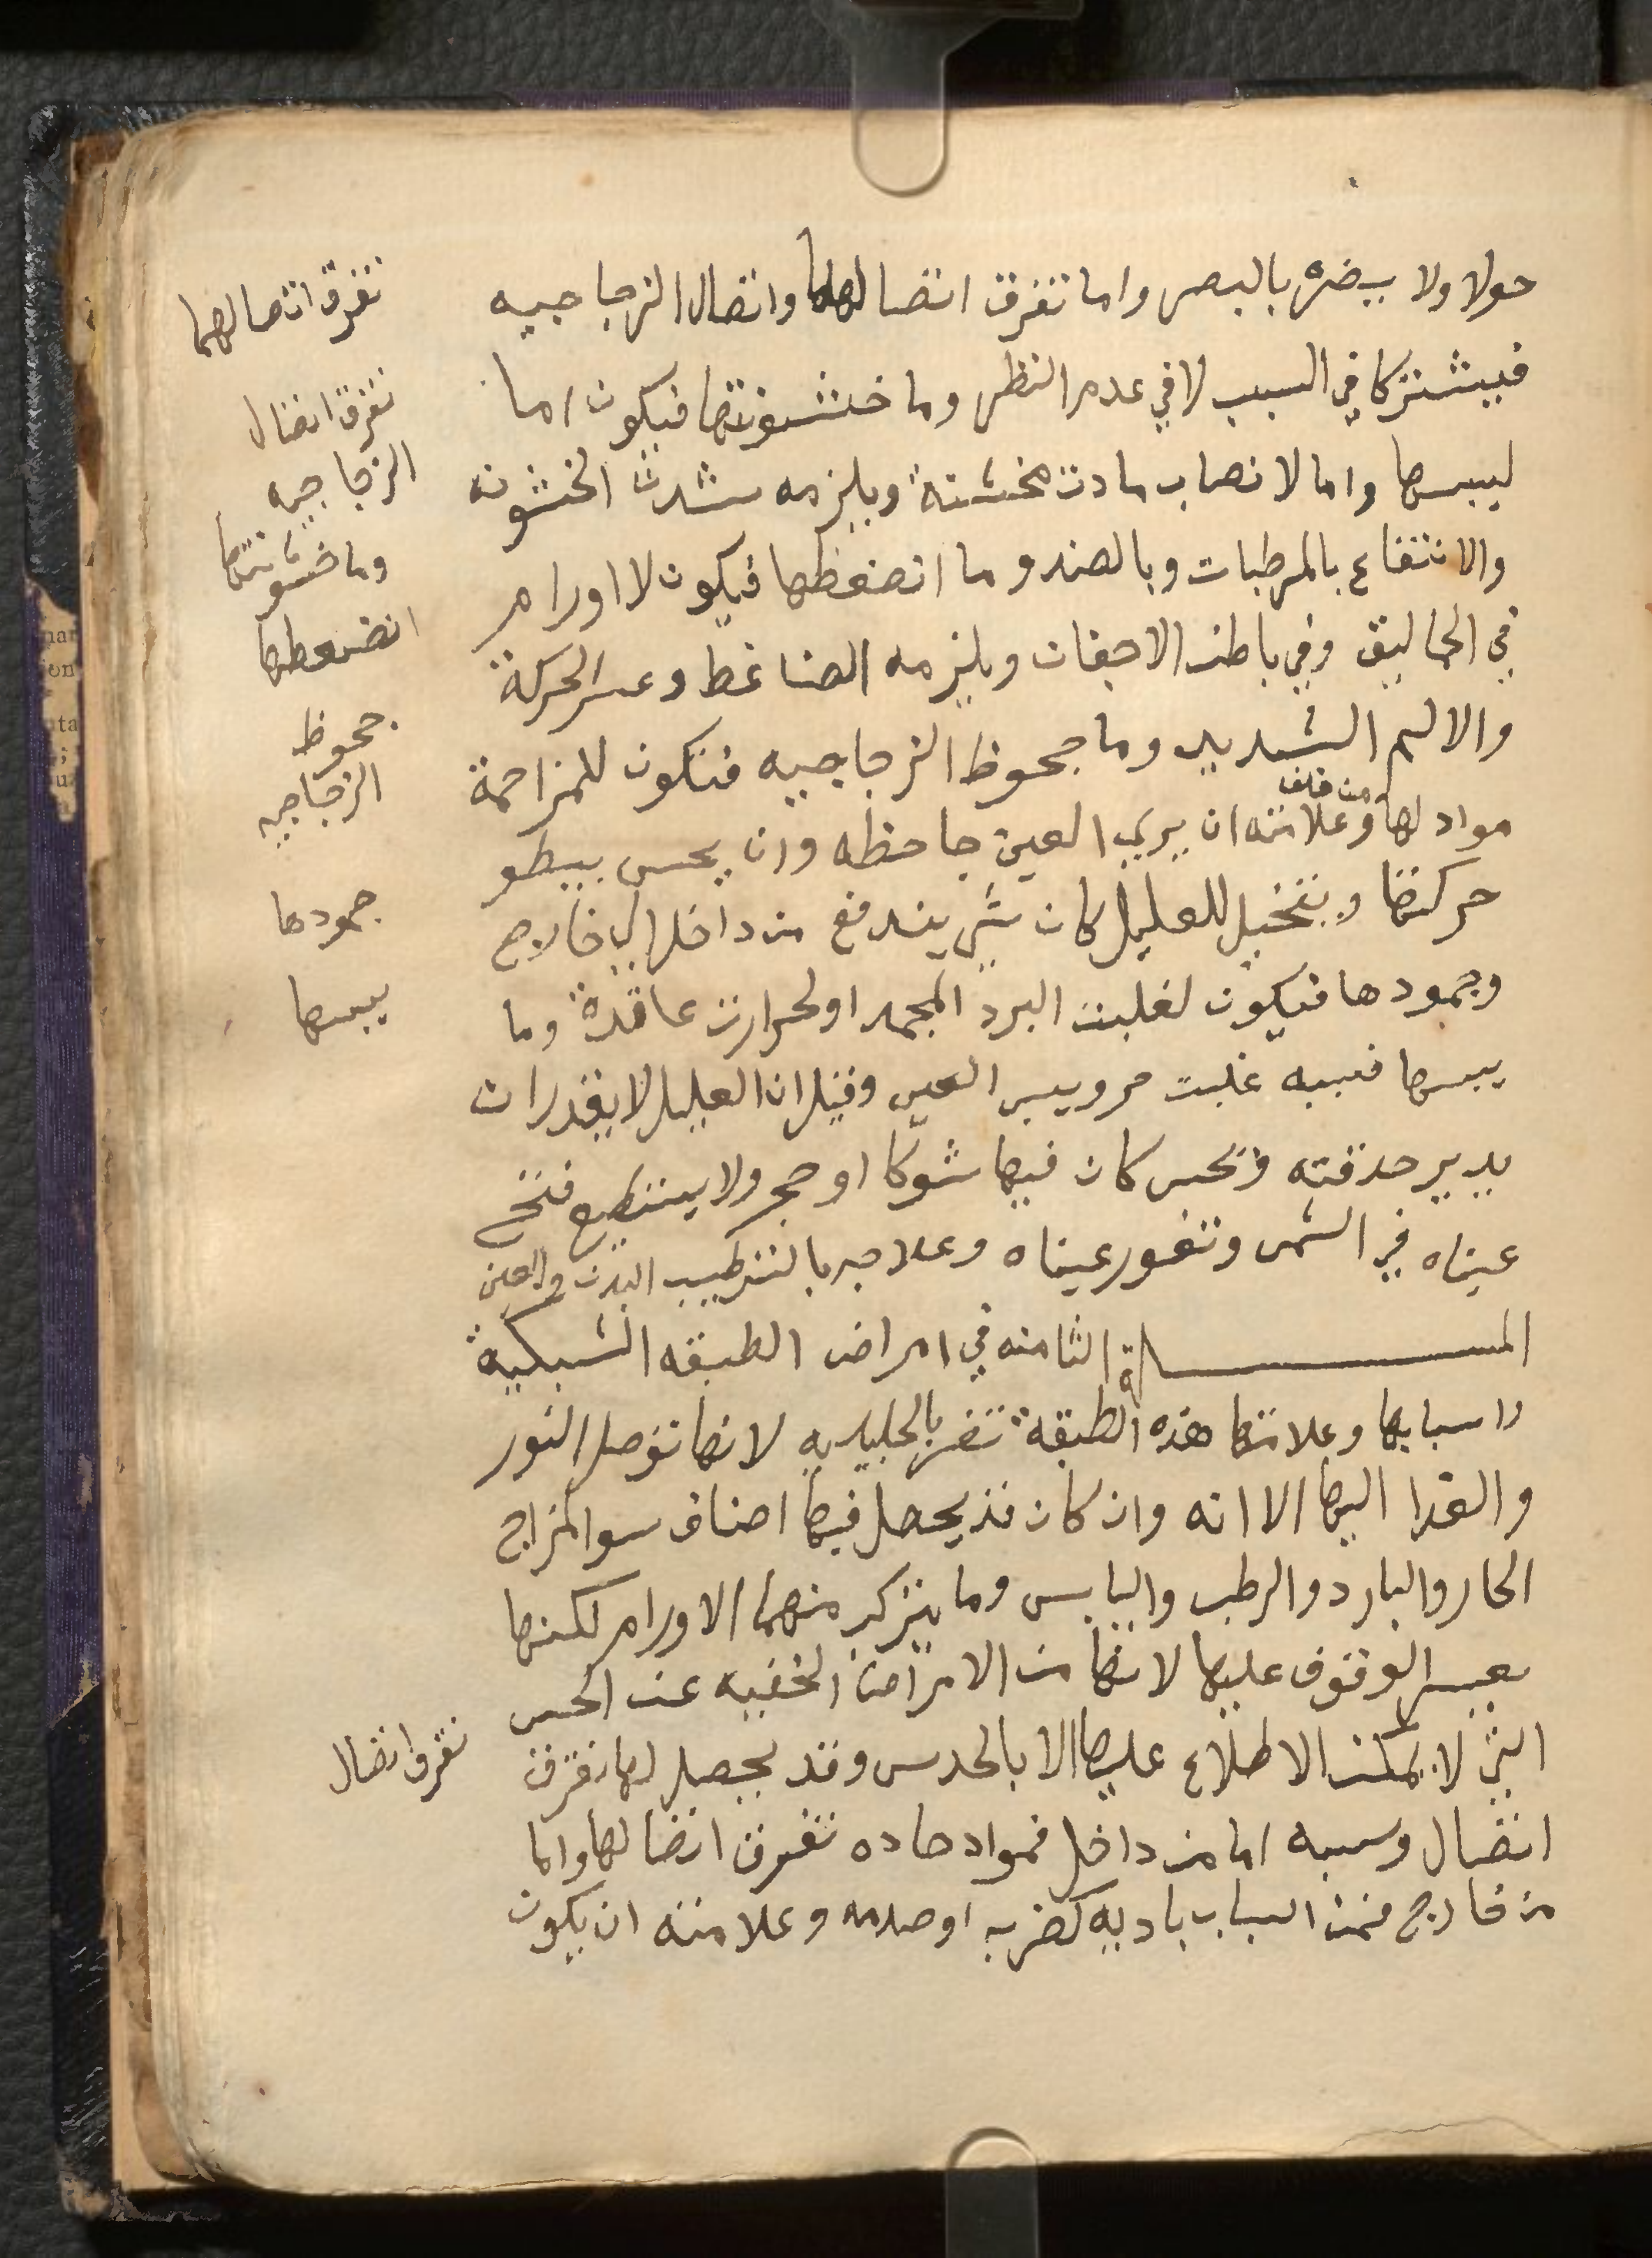 حولا ولا يضره بالبصر واما تفرق اتصالها واتصال الزجاجيه
فيشتركا في السبب لا في عدم النظر وما خشونتها فيكون اما
ليبسها واما لانصاب مادت مخشنة ويلزمه شدت الخشونه
والانتفاع بالمرطبات وبالضد وما انضغطها فيكون لا اورام
في الحماليق وفي باطن الاجفان ويلزمه الضاغط وعسر الحركة
والالم الشديد وما جحوظ الزجاجيه فتكون للمزاحمة
من خلف
مواد لها وعلامته ان يري العين جاحظه وان يحس ببطو
حركتها ويتخيل للعليل كان شي يندفع من داخل الي خارج
وجمودها فيكون لغلبت البرد المجمد او لحرارت عاقدة وما
يبسها فسببه غلبت حر ويبس العين وقيل ان العليل لا يقدر ان
يدير حدقته وتحس كان فيها شوكا او حجر ولا يستطيع فتح
عيناه في الشمس وتغور عيناه وعلاجه بالترطيب البدن والعين
المسالة الثامنه في امراض الطبقه الشبكية
واسبابها وعلامتها هذه الطبقة تضر بالجليديه لانها توصل النور
والغدا اليها الا انه وان كان قد يحصل فيها اصناف سو المزاج
الحار والبارد والرطب واليابس وما يتركب منهما الاورام لكنها
يعسر الوقوف عليها لانها من الامراض الخفيه عن الحس
التي لا يمكن الاطلاع عليها الا بالحدس وقد يحصل لها تفرق
اتصال وسببه اما من داخل فمواد حاده تفرق اتصالها واما
من خارج فمن اسباب باديه كضربه او صدمه وعلامته ان يكون
تفرق اتصالهما
تفرق اتصال
الزجاجيه
وما خشونتها
انضغطها
جحوظ
الزجاجيه
جمودها
يبسها
تفرق اتصال